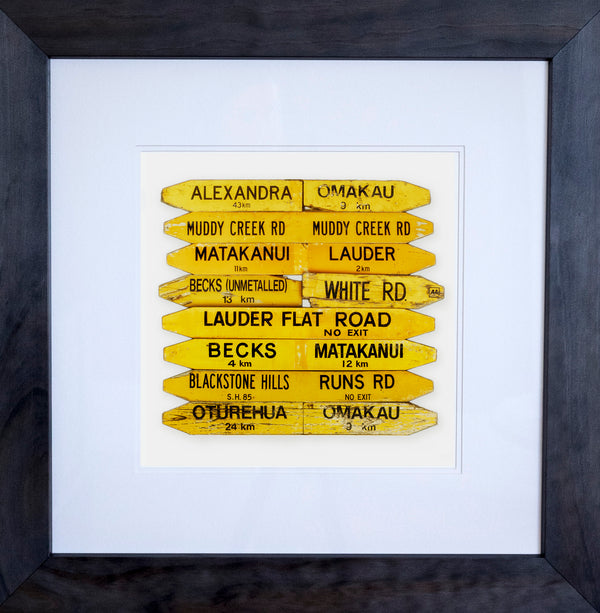 ALEXANDRA OMAKAU
43km 9 km
MUDDY CREEK RD MUDDY CREEK RD
MATAKANUI LAUDER
11km 2km
BECKS (UNMETALLED) WHITE RD AA
13 km
LAUDER FLAT ROAD
NO EXIT
BECKS MATAKANUI
4 km 12 km
BLACKSTONE HILLS RUNS RD
S.H. 85 NO EXIT
OTUREHUA OMAKAU
24 km 9 km